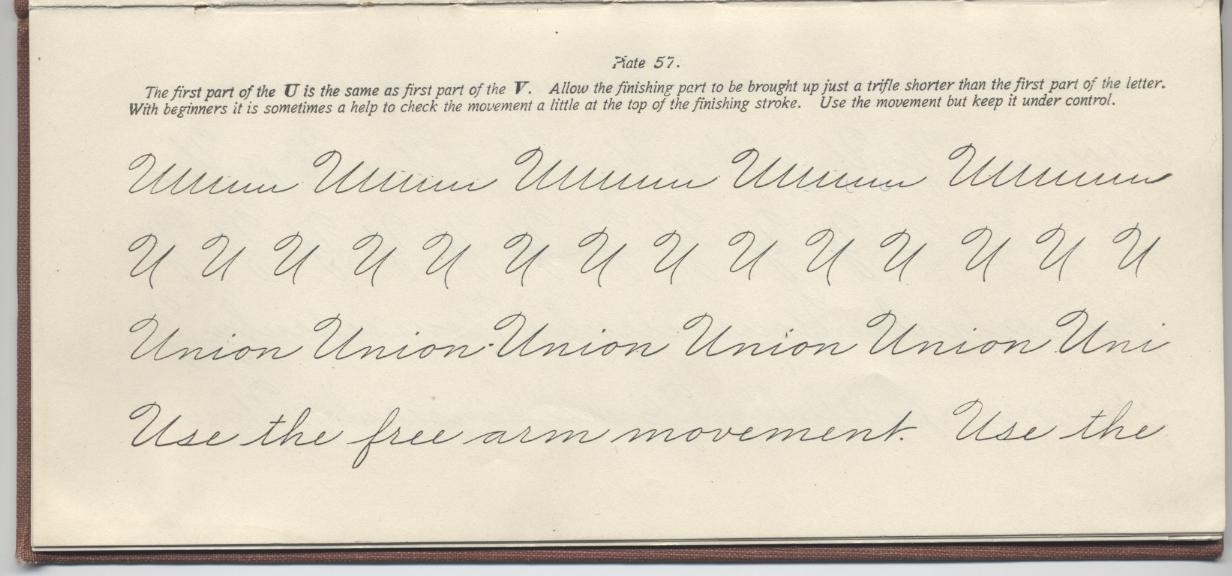 Plate 57.
The first part of the U is the same as first part of the V. Allow the finishing part to be brought up just a trifle shorter than the first part of the letter.
With beginners it is sometimes a help to check the movement a little at the top of the finishing stroke. Use the movement but keep it under control.
Uuuuu Uuuuu Uuuuu Uuuuu Uuuuu
U U U U U U U U U U U U U U
Union Union Union Union Union Uni
Use the free arm movement. Use the